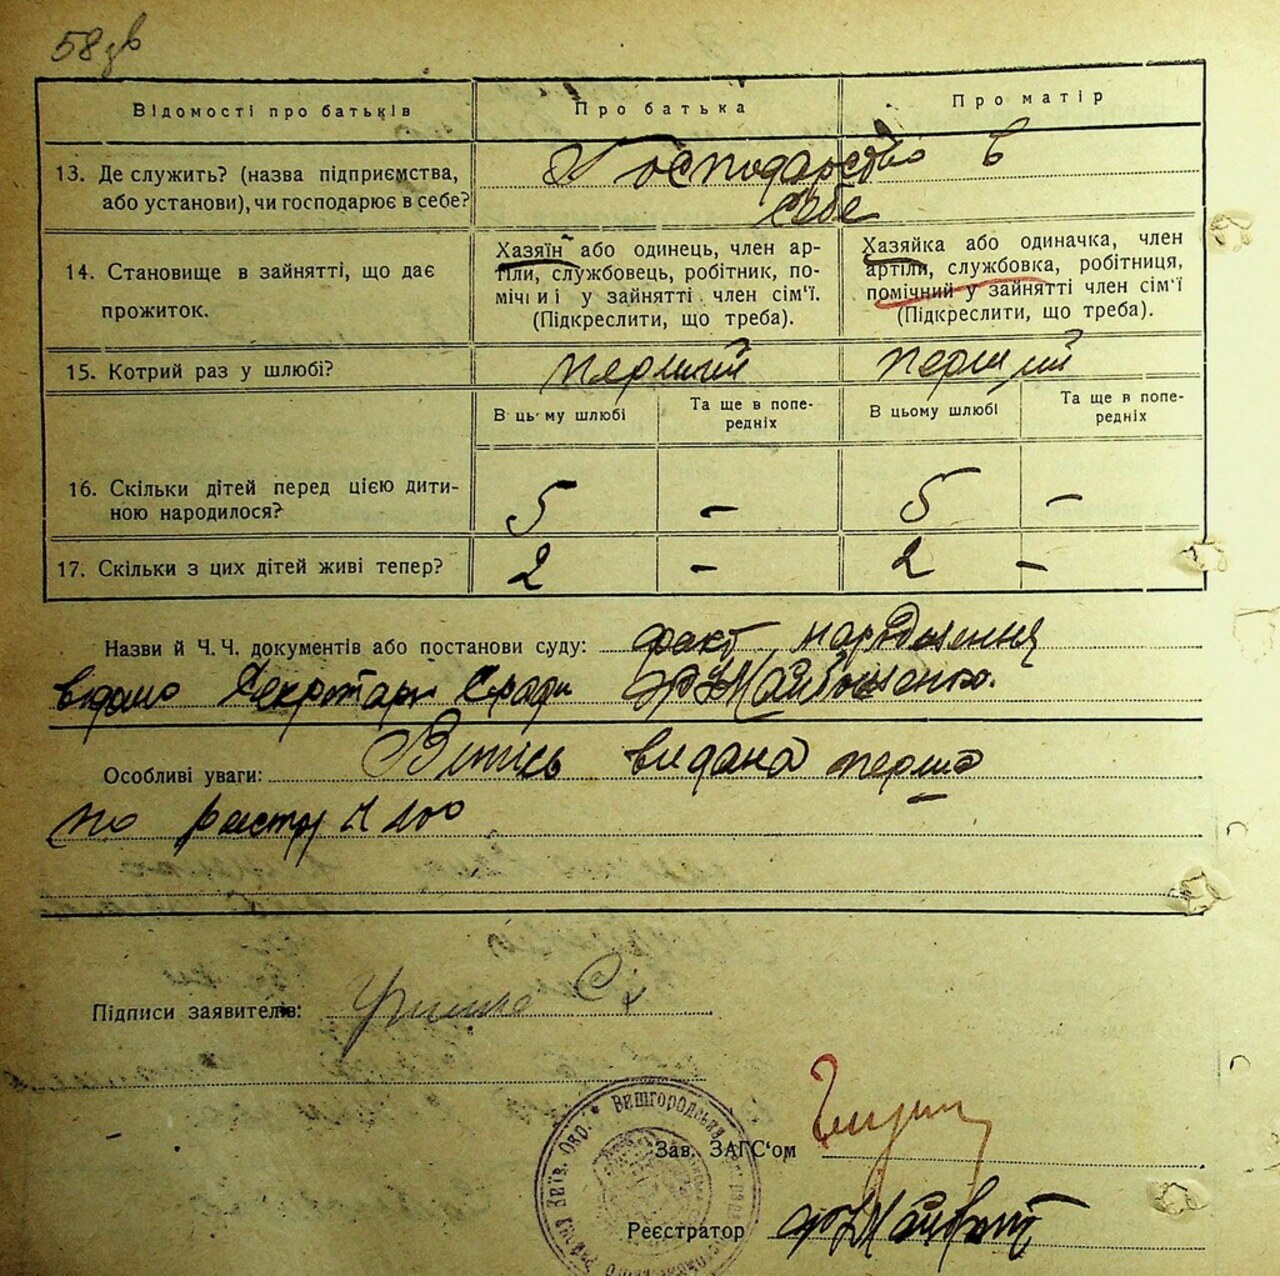 58зв
Відомості про батьків
Про батька
Про матір
13. Де служить? (назва підприємства,
або установи), чи господарює в себе?
Господарство в
себе
14. Становище в зайнятті, що дає
прожиток.
Хазяїн або одинець, член ар-
тіли, службовець, робітник, по-
мічний у зайнятті член сім'ї.
(Підкреслити, що треба).
Хазяйка або одиначка, член
артіли, службовка, робітниця,
помічний у зайнятті член сім'ї
(Підкреслити, що треба).
15. Котрий раз у шлюбі?
перший
перший
В цьому шлюбі
Та ще в попе-
редніх
В цьому шлюбі
Та ще в попе-
редніх
16. Скільки дітей перед цією дити-
ною народилося?
5 - 5 -
17. Скільки з цих дітей живі тепер?
2 - 2 -
Назви й Ч. Ч. документів або постанови суду: факт народження
відомо Секретарю С/ради
Особливі уваги: Витись видана перша
по реєстру №
Підписи заявителів:
Вишгородська
Київ. Окр.
Зав. ЗАГС'ом
Реєстратор